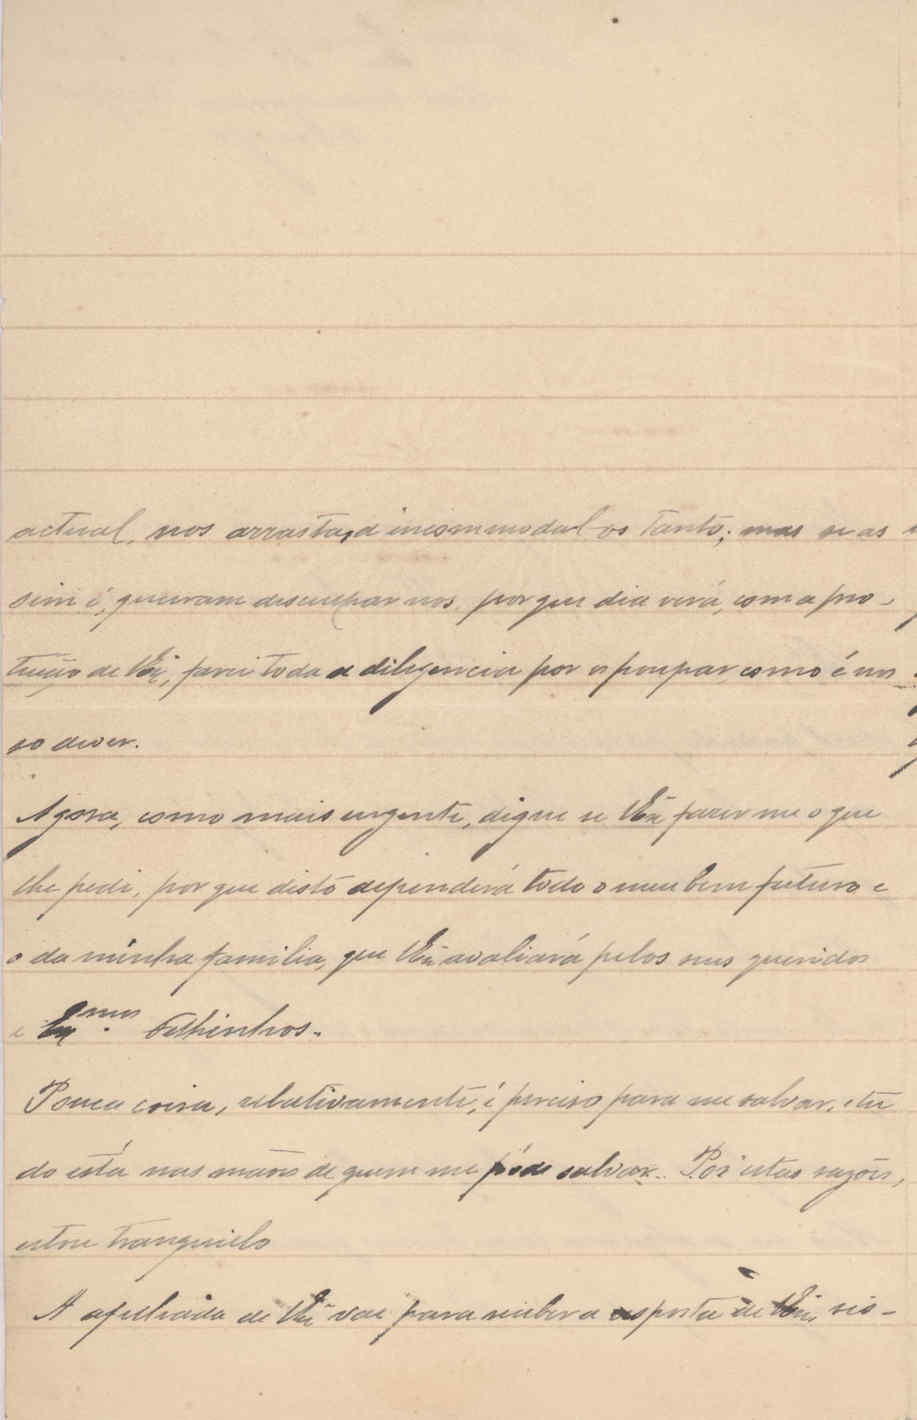 actual, nos arrasta, a incommodal-os tanto; mas se as
sim é, queiram desculpar nos, por que dia virá, com a pro-
tecção de V.Ex.ª, farei toda a diligencia por os poupar, como é nos
so dever.
Agora, como mais urgente, digne se V.Ex.ª fazer me o que
lhe pedi, por que disto dependerá todo o meu bem futuro e
o da minha familia, que V.Ex.ª avaliará pelos seus queridos
e Ex.mos Filhinhos.
Pouca coisa, relativamente, é preciso para me salvar, e tu
do está nas mãos de quem me póde salvar. Por estas razões,
estou tranquilo
A afilhada de V.Ex.ª vae para receber a resposta de V.Ex.ª, vis-